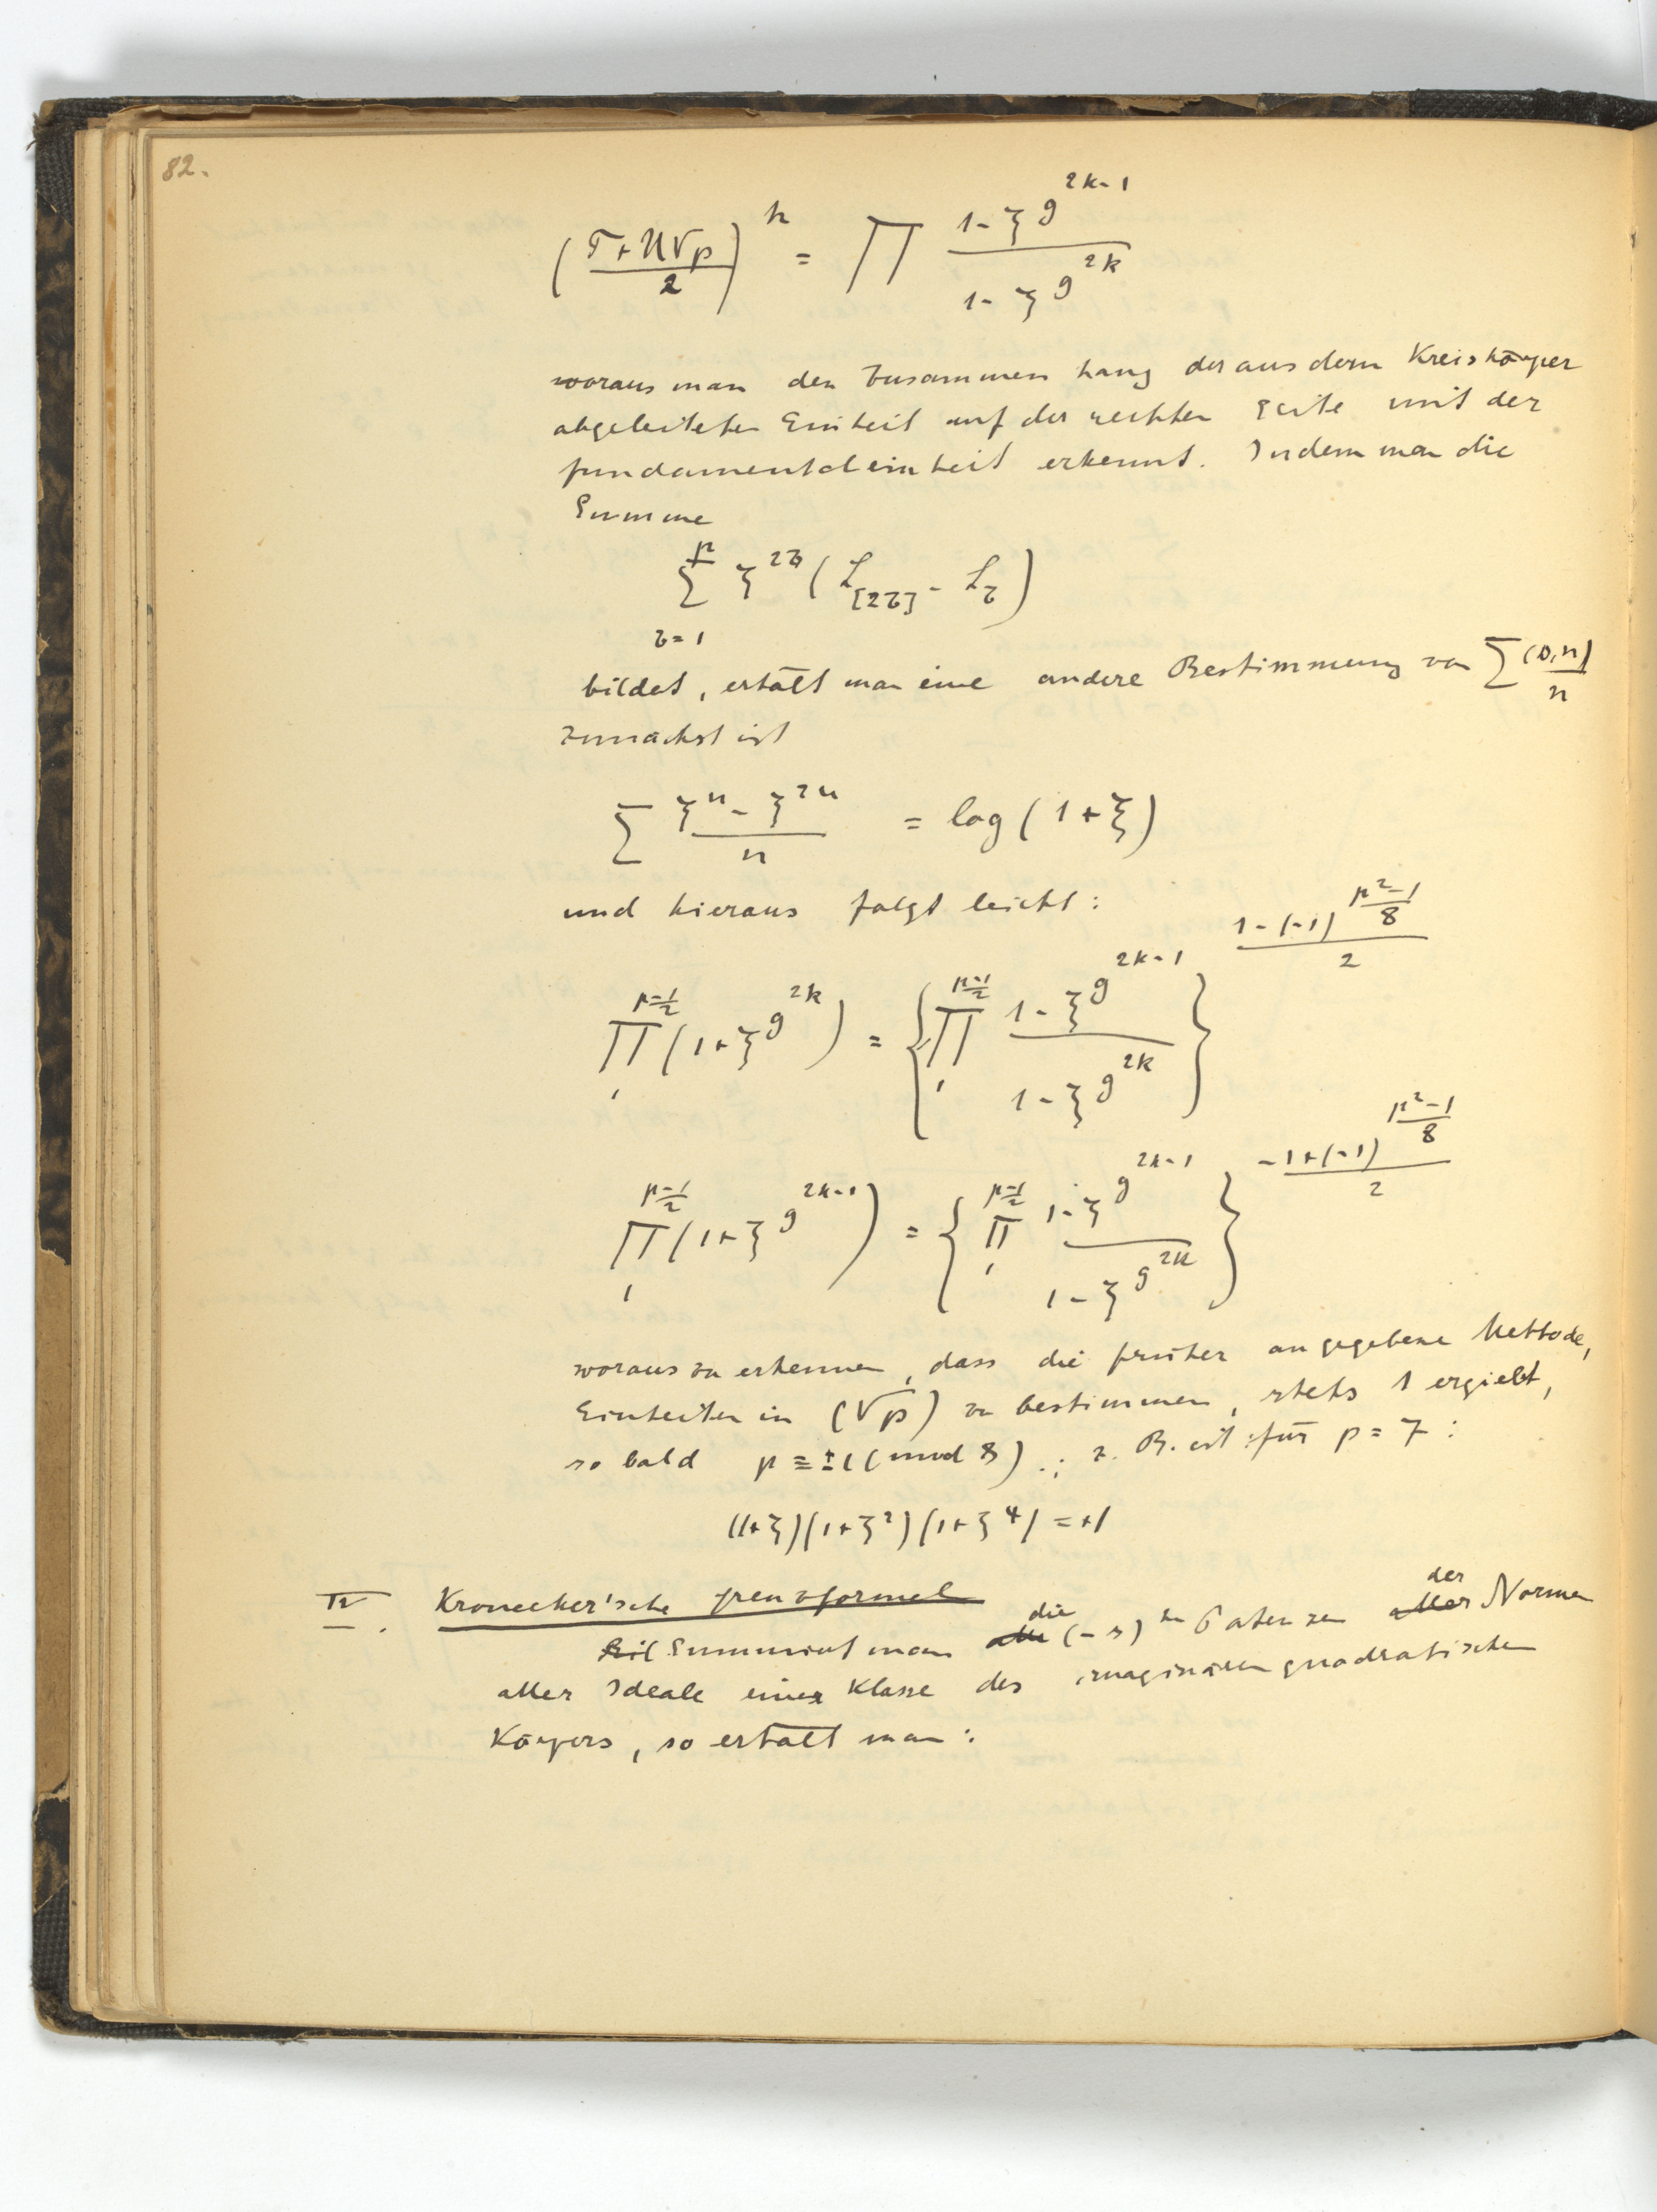 82.
(T+U√p / 2)^h = ∏ (1-ζ^g^2k-1) / (1-ζ^g^2k)
woraus man den Zusammenhang der aus dem Kreiskörper
abgeleiteten Einheit auf der rechten Seite mit der
fundamentaleinheit erkennt. Indem man die
Summe
∑_{τ=1}^{p} ζ^2τ (L_[2τ] - L_τ)
bildet, erhält man eine andere Bestimmung von ∑ (D,n)/n
Zunächst ist
∑ (ζ^n - ζ^2n)/n = log(1+ζ)
und hieraus folgt leicht:
∏_1^{p-1/2} (1+ζ^g^2k) = {∏_1^{p-1/2} (1-ζ^g^2k-1) / (1-ζ^g^2k)}^{(1-(-1)^{(p²-1)/8})/2}
∏_1^{p-1/2} (1+ζ^g^2k-1) = {∏_1^{p-1/2} (1-ζ^g^2k-1) / (1-ζ^g^2k)}^{(-1+(-1)^{(p²-1)/8})/2}
woraus zu erkennen, dass die früher angegebene Methode,
Einheiten in (√p) zu bestimmen, stets 1 ergiebt,
so bald p ≡ ±1 (mod 8) .; z. B. ist für p = 7:
(1+ζ)(1+ζ²)(1+ζ⁴) = +1
IV. Kronecker'sche Grenzformel
Summirt man die (-s)ten Potenzen der Normen
aller Ideale einer Klasse des imaginären quadratischen
Körpers, so erhält man: